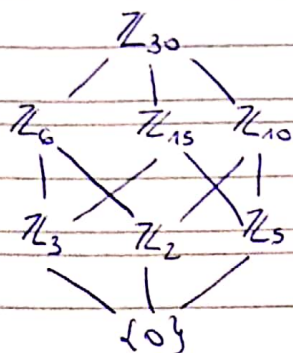 ℤ₃₀
ℤ₆ ℤ₁₅ ℤ₁₀
ℤ₃ ℤ₂ ℤ₅
{0}